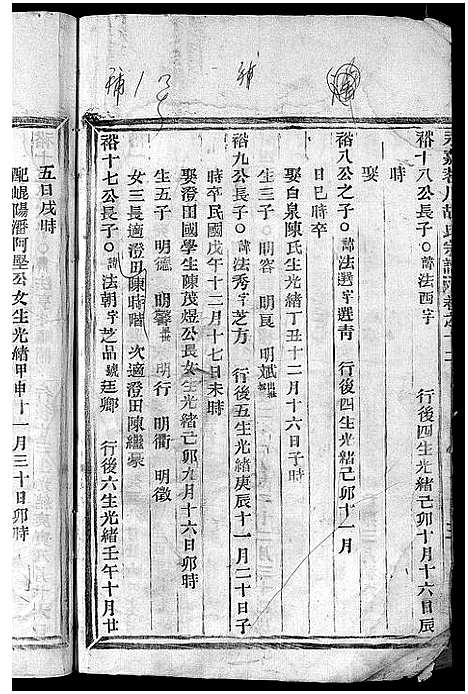 裕十八公長子○諱法西字　行後四生光緒己卯十月十六日辰
時
娶
裕八公之子○諱法選字選青　行後四生光緒己卯十一月
日巳時卒
娶白泉陳氏生光緒丁丑十二月十六日子時
生三子　明容　明良　明斌出繼
裕九公長子○諱法秀字芝方　行後五生光緒庚辰十一月二十日子
時卒民國戊午十二月十七日未時
娶澄田國學生陳茂焜公長女生光緒己卯九月十六日卯時
生五子　明德　明馨　明行　明衢　明徵
女三長適澄田陳時階　次適澄田陳繼豪
裕十七公長子○諱法朝字芝品號廷鄉　行後六生光緒壬午十月廿
五日戌時
配崐陽潘阿壂公女生光緒甲申十一月三十日卯時
補
補